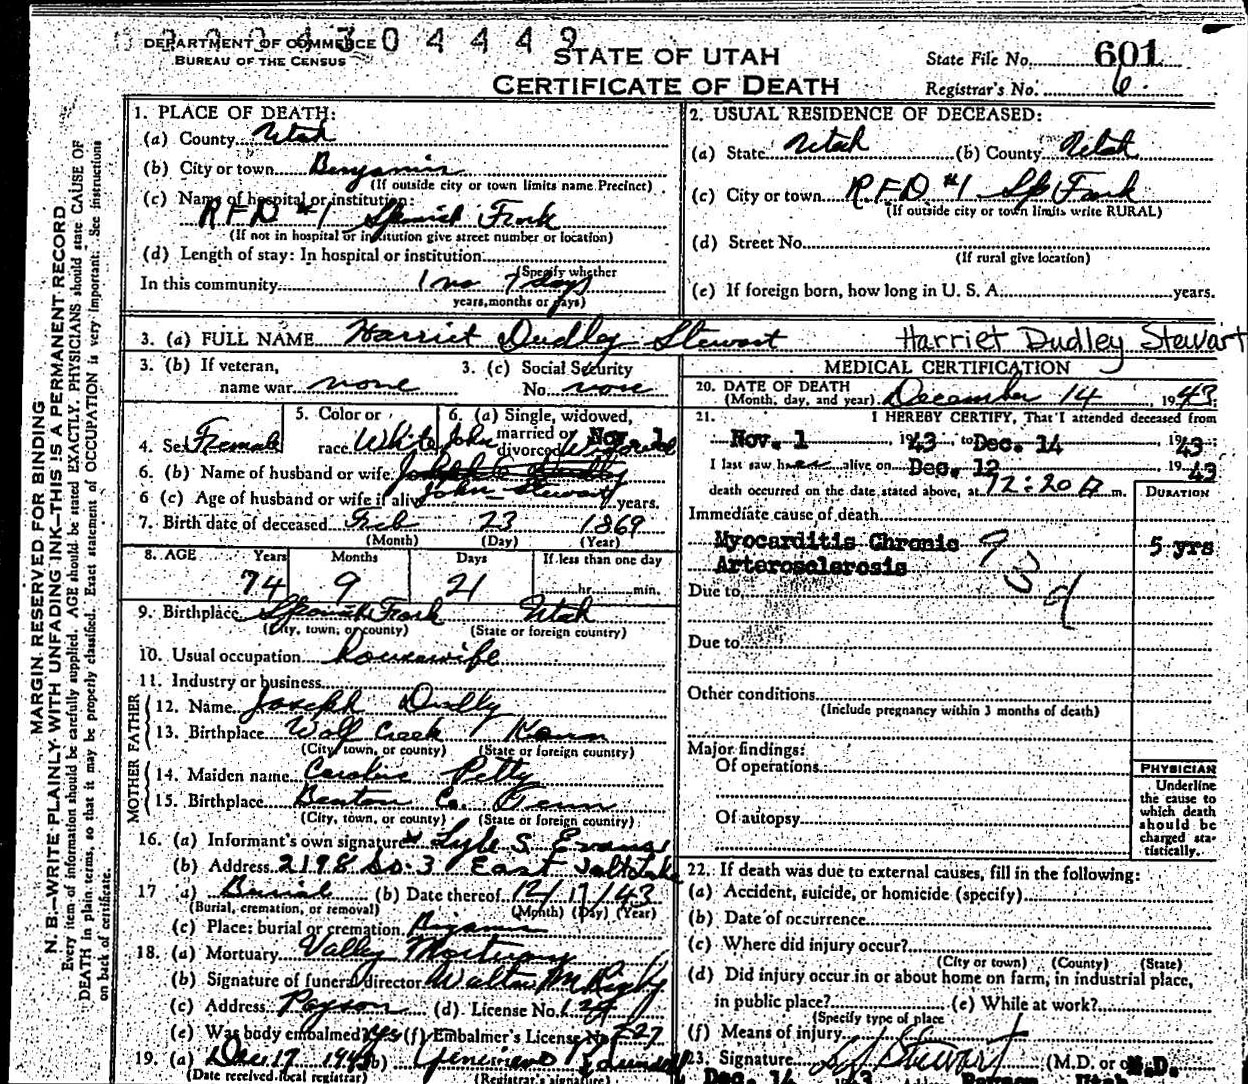 DEPARTMENT OF COMMERCE
BUREAU OF THE CENSUS
04449
STATE OF UTAH
CERTIFICATE OF DEATH
State File No. 601
Registrar's No. 6
MARGIN RESERVED FOR BINDING
N. B.—WRITE PLAINLY WITH UNFADING INK—THIS IS A PERMANENT RECORD
Every item of information should be carefully supplied. AGE should be stated EXACTLY. PHYSICIANS should state CAUSE OF
DEATH in plain terms, so that it may be properly classified. Exact statement of OCCUPATION is very important. See instructions
on back of certificate.
1. PLACE OF DEATH:
(a) County Utah
(b) City or town Benjamin
(If outside city or town limits name Precinct)
(c) Name of hospital or institution:
R.F.D #1 Spanish Fork
(If not in hospital or institution give street number or location)
(d) Length of stay: In hospital or institution
(Specify whether
In this community 1 mo 7 days
years, months or days)
2. USUAL RESIDENCE OF DECEASED:
(a) State Utah (b) County Utah
(c) City or town R.F.D #1 Sp Fork
(If outside city or town limits write RURAL)
(d) Street No.
(If rural give location)
(e) If foreign born, how long in U. S. A. years.
3. (a) FULL NAME Harriet Dudley Stewart Harriet Dudley Stewart
3. (b) If veteran, name war none
3. (c) Social Security No. none
4. Sex Female
5. Color or race White
6. (a) Single, widowed, married or divorced Widowed
6. (b) Name of husband or wife John
6 (c) Age of husband or wife if alive John Stewart years.
7. Birth date of deceased Feb 23 1869
(Month) (Day) (Year)
8. AGE Years Months Days If less than one day
74 9 21 hr. min.
9. Birthplace Spanish Fork Utah
(City, town, or county) (State or foreign country)
10. Usual occupation housewife
11. Industry or business
FATHER
12. Name Joseph Dudley
13. Birthplace Wolf Creek
(City, town, or county) (State or foreign country)
MOTHER
14. Maiden name Caroline Petty
15. Birthplace Benton Co. Tenn
(City, town, or county) (State or foreign country)
16. (a) Informant's own signature Lyle S. Evans
(b) Address 2198 So. 3 East Salt Lake
17 a) Burial (b) Date thereof 12/17/43
(Burial, cremation, or removal) (Month) (Day) (Year)
(c) Place: burial or cremation Benjamin
18. (a) Mortuary Valley Mortuary
(b) Signature of funeral director
(c) Address Payson (d) License No.
(e) Was body embalmed? yes (f) Embalmer's License No.
19. (a) Dec 17 1943 (b)
(Date received local registrar) (Registrar's signature)
MEDICAL CERTIFICATION
20. DATE OF DEATH
(Month, day, and year) December 14 1943
21. I HEREBY CERTIFY, That I attended deceased from
Nov. 1 1943, to Dec. 14 1943;
I last saw her alive on Dec. 12 1943
death occurred on the date stated above, at 12:20 A m.
DURATION
Immediate cause of death
Myocarditis Chronic 5 yrs
Arterosclerosis
93d
Due to
Due to
Other conditions
(Include pregnancy within 3 months of death)
Major findings:
Of operations
Of autopsy
PHYSICIAN
Underline
the cause to
which death
should be
charged sta-
tistically.
22. If death was due to external causes, fill in the following:
(a) Accident, suicide, or homicide (specify)
(b) Date of occurrence
(c) Where did injury occur?
(City or town) (County) (State)
(d) Did injury occur in or about home on farm, in industrial place,
in public place? (e) While at work?
(Specify type of place
(f) Means of injury
23. Signature Stewart (M.D. or o M.D.
Dec. 14